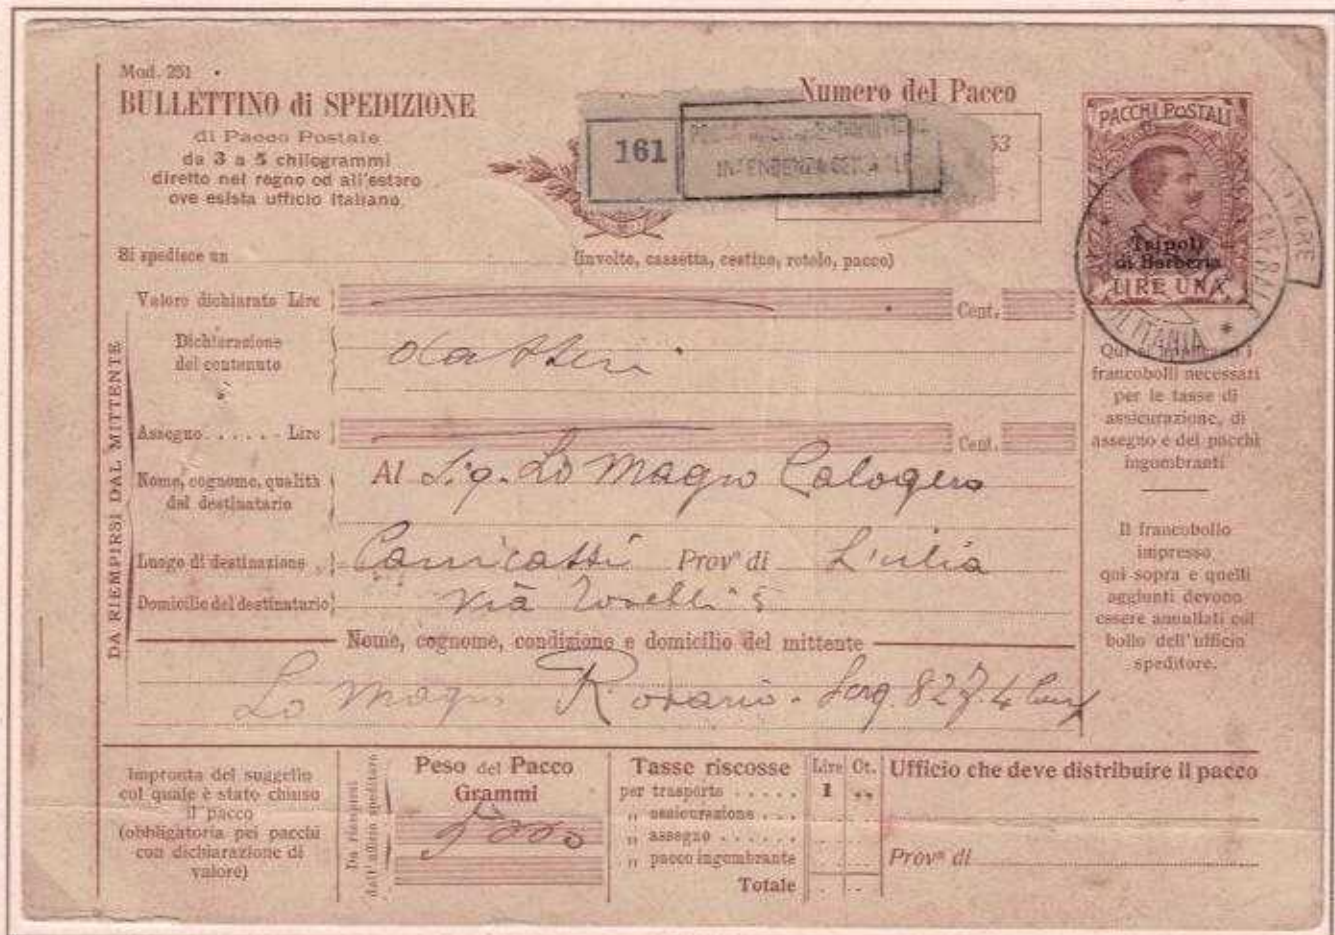 Mod. 251
BULLETTINO di SPEDIZIONE
di Pacco Postale
da 3 a 5 chilogrammi
diretto nel regno od all'estero
ove esista ufficio Italiano
Numero del Pacco
161
53
INTENDENZA
PACCHI POSTALI
Tripoli
di Barberia
LIRE UNA
Si spedisce un (involto, cassetta, cestino, rotolo, pacco)
Valore dichiarato Lire Cent.
Dichiarazione
del contenuto
Assegno . . . . . Lire Cent.
Nome, cognome, qualità
del destinatario
Al Sig. Lo Magro Calogero
Luogo di destinazione Canicatti Provª di
Domicilio del destinatario Via 5
Nome, cognome, condizione e domicilio del mittente
Lo Rosario
DA RIEMPIRSI DAL MITTENTE
Qui si i
francobolli necessari
per le tasse di
assicurazione, di
assegno e dei pacchi
ingombranti
Il francobollo
impresso
qui sopra e quelli
aggiunti devono
essere annullati col
bollo dell'ufficio
speditore.
Impronta del suggello
col quale è stato chiuso
il pacco
(obbligatoria pei pacchi
con dichiarazione di
valore)
Da riempirsi
dall'ufficio speditore
Peso del Pacco
Grammi
5000
Tasse riscosse Lire Ct.
per trasporto . . . . . 1 ,,
,, assicurazione . . .
,, assegno . . . . . .
,, pacco ingombrante
Totale
Ufficio che deve distribuire il pacco
Provª di